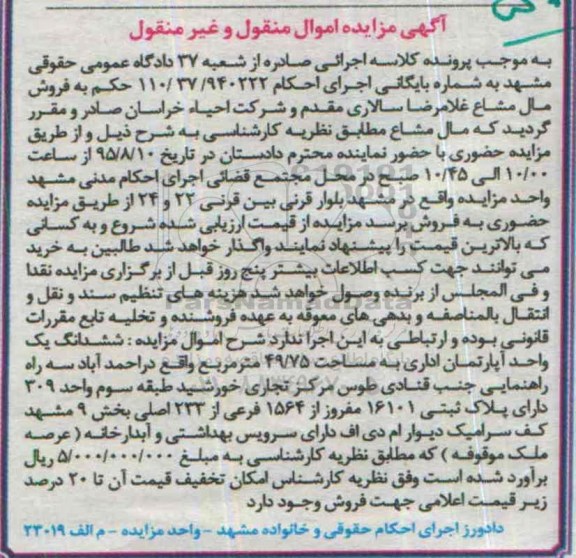 آگهی مزایده اموال منقول و غیر منقول
به موجب پرونده کلاسه اجرائی صادره از شعبه ۳۷ دادگاه عمومی حقوقی
مشهد به شماره بایگانی اجرای احکام ۹۴۰۲۲۲/ ۳۷ /۱۱۰ حکم به فروش
مال مشاع غلامرضا سالاری مقدم و شرکت احیاء خراسان صادر و مقرر
گردید که مال مشاع مطابق نظریه کارشناسی به شرح ذیل و از طریق
مزایده حضوری با حضور نماینده محترم دادستان در تاریخ ۹۵/۸/۱۰ از ساعت
۱۰/۰۰ الی ۱۰/۴۵ صبح در محل مجتمع قضائی اجرای احکام مدنی مشهد
واحد مزایده واقع در مشهد بلوار قرنی بین قرنی ۲۲ و ۲۴ از طریق مزایده
حضوری به فروش برسد مزایده از قیمت ارزیابی شده شروع و به کسانی
که بالاترین قیمت را پیشنهاد نمایند واگذار خواهد شد طالبین به خرید
می توانند جهت کسب اطلاعات بیشتر پنج روز قبل از برگزاری مزایده نقدا
و فی المجلس از برنده وصول خواهد شد هزینه های تنظیم سند و نقل و
انتقال بالمناصفه و بدهی های معوقه به عهده فروشنده و تخلیه تابع مقررات
قانونی بوده و ارتباطی به این اجرا ندارد شرح اموال مزایده : ششدانگ یک
واحد آپارتمان اداری به مساحت ۴۹/۷۵ مترمربع واقع دراحمد آباد سه راه
راهنمایی جنب قنادی طوس مرکز تجاری خورشید طبقه سوم واحد ۳۰۹
دارای پلاک ثبتی ۱۶۱۰۱ مفروز از ۱۵۶۴ فرعی از ۲۳۳ اصلی بخش ۹ مشهد
کف سرامیک دیوار ام دی اف دارای سرویس بهداشتی و آبدارخانه ( عرصه
ملک موقوفه ) که مطابق نظریه کارشناسی به مبلغ ۵/۰۰۰/۰۰۰/۰۰۰ ریال
برآورد شده است وفق نظریه کارشناس امکان تخفیف قیمت آن تا ۲۰ درصد
زیر قیمت اعلامی جهت فروش وجود دارد
دادورز اجرای احکام حقوقی و خانواده مشهد -واحد مزایده - م الف ۲۳۰۱۹
ParsNamadData